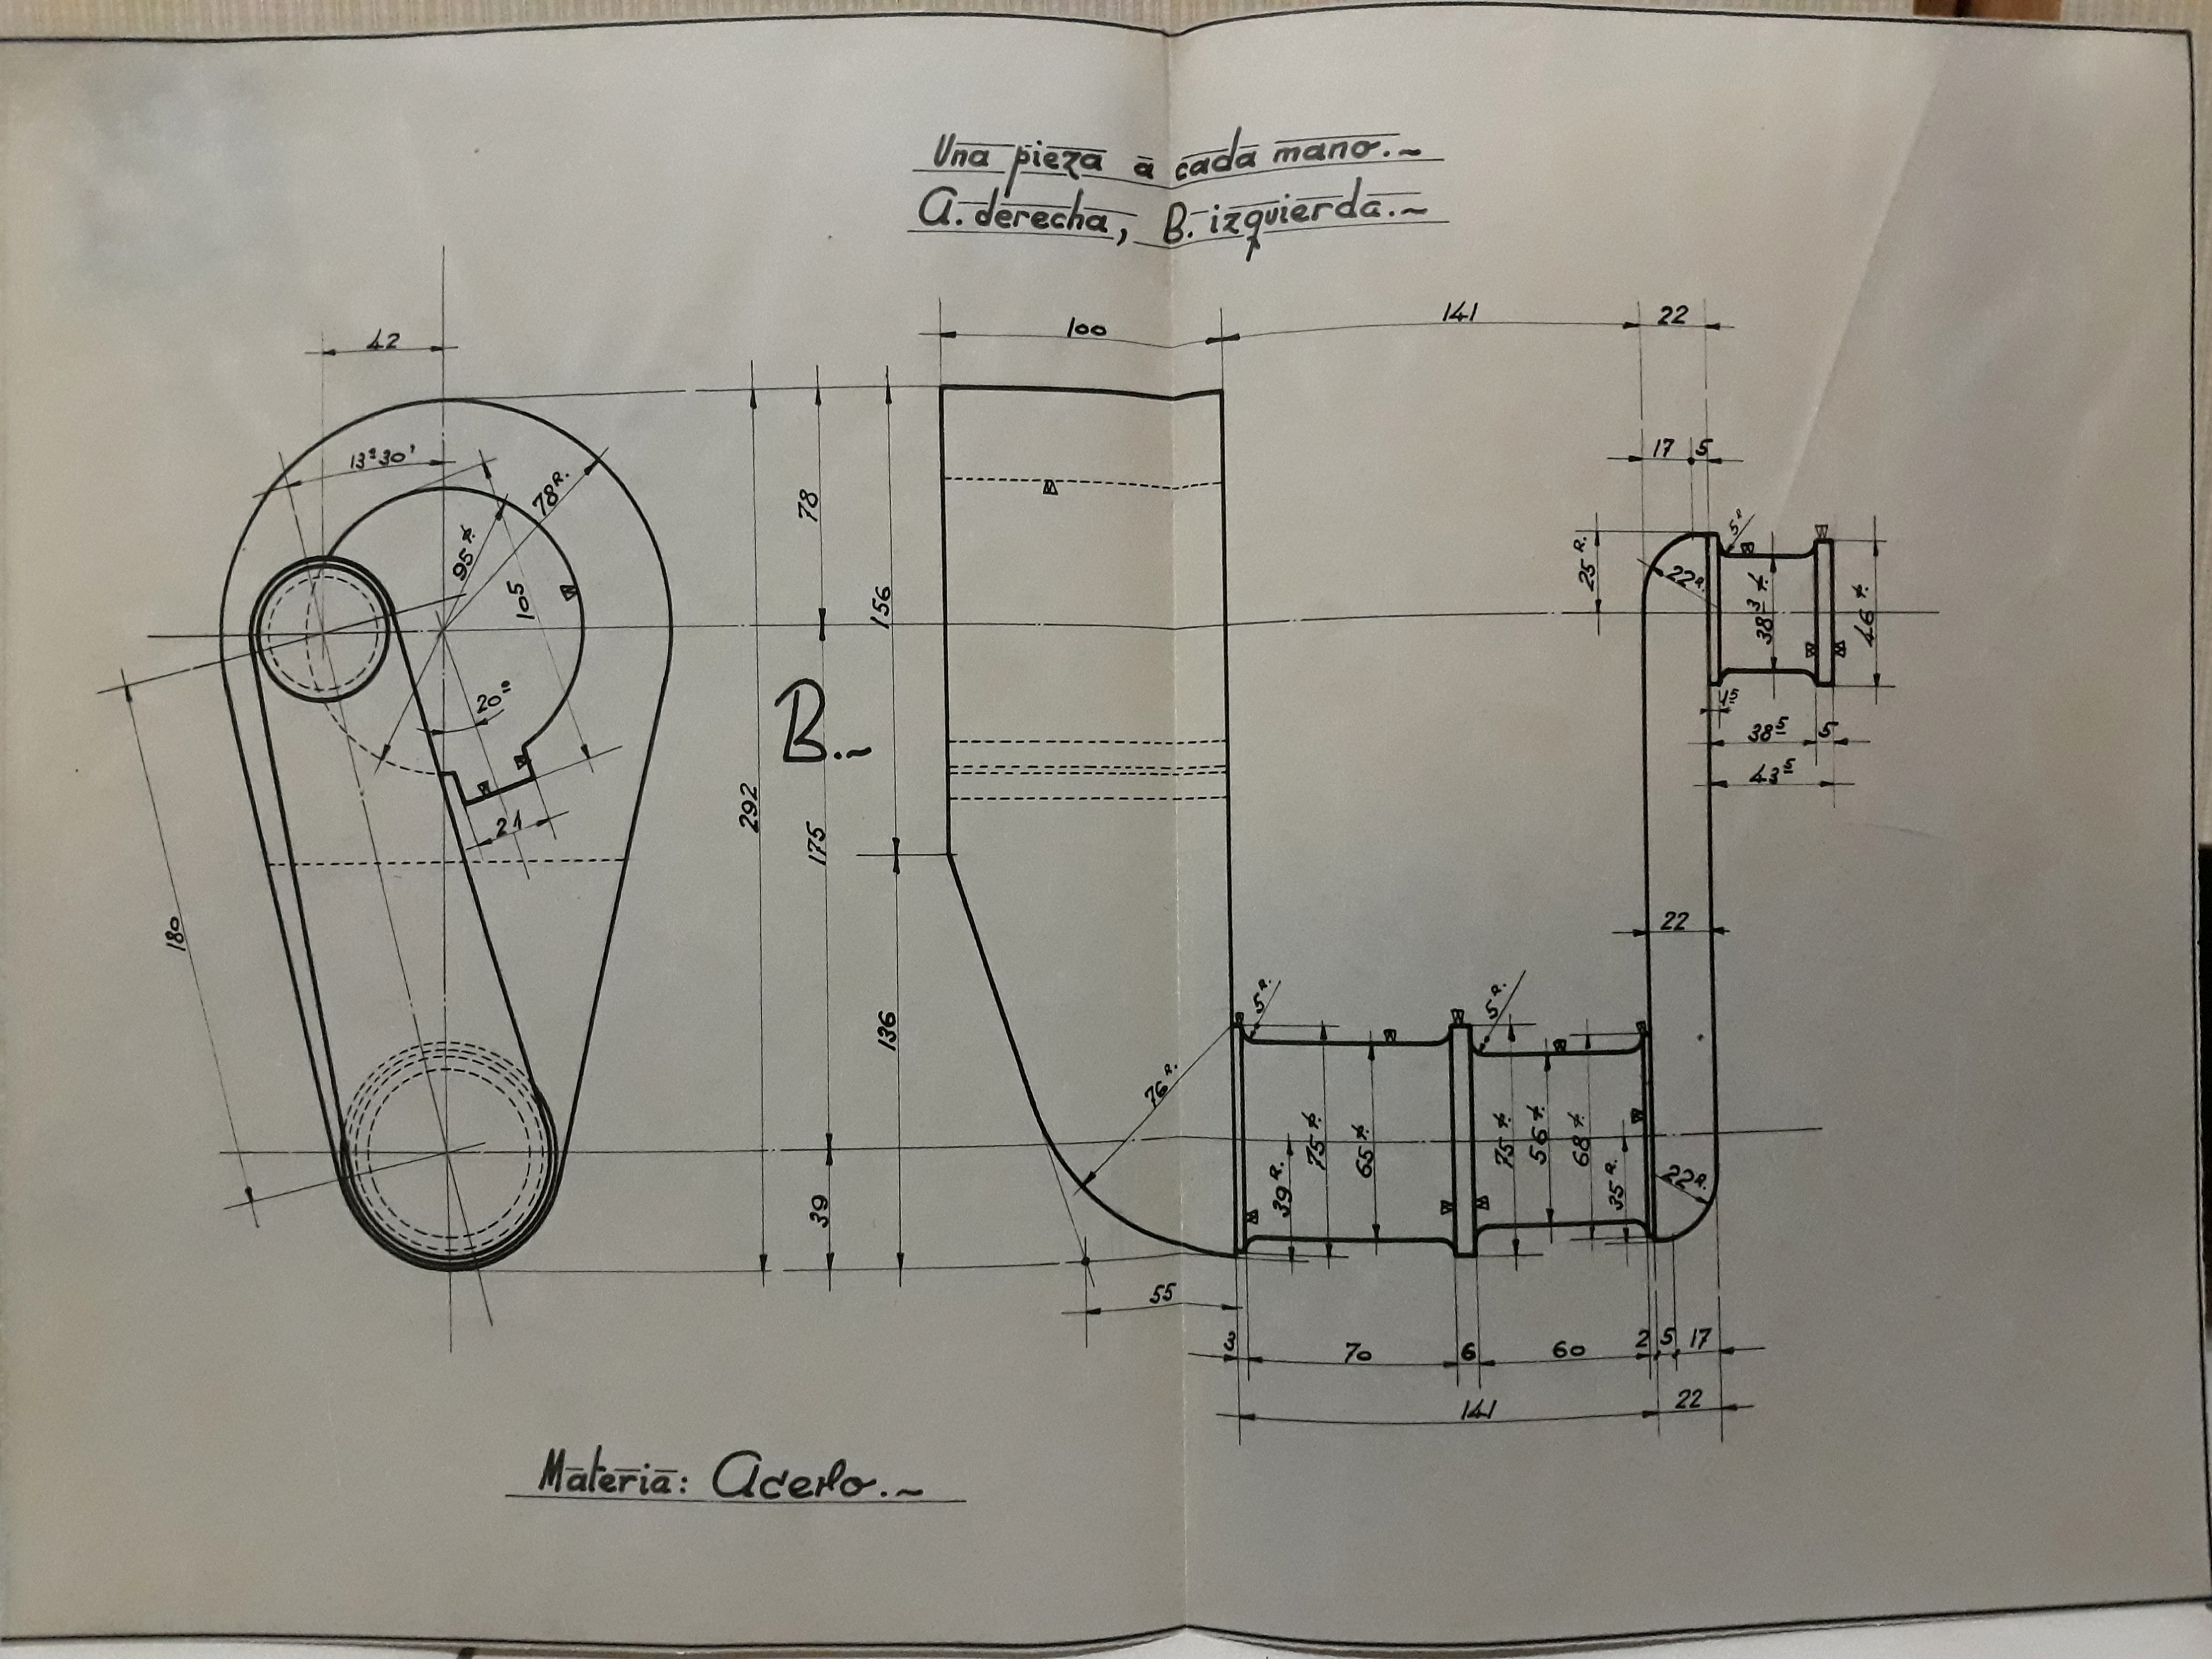 Una pieza a cada mano.~
A. derecha, B. izquierda.~
42
13º30'
78 R.
95
105
20º
21
180
292
78
175
39
156
136
B.~
100
141
22
17 5
25 R.
22 R.
5 R
38 3
46
1 5
38 5 5
43 5
22
76 R.
5 R.
5 R.
39 R.
75
65
75
56
68
35 R.
22 R.
55
3 70 6 60 2 5 17
141 22
Materia: Acero.~